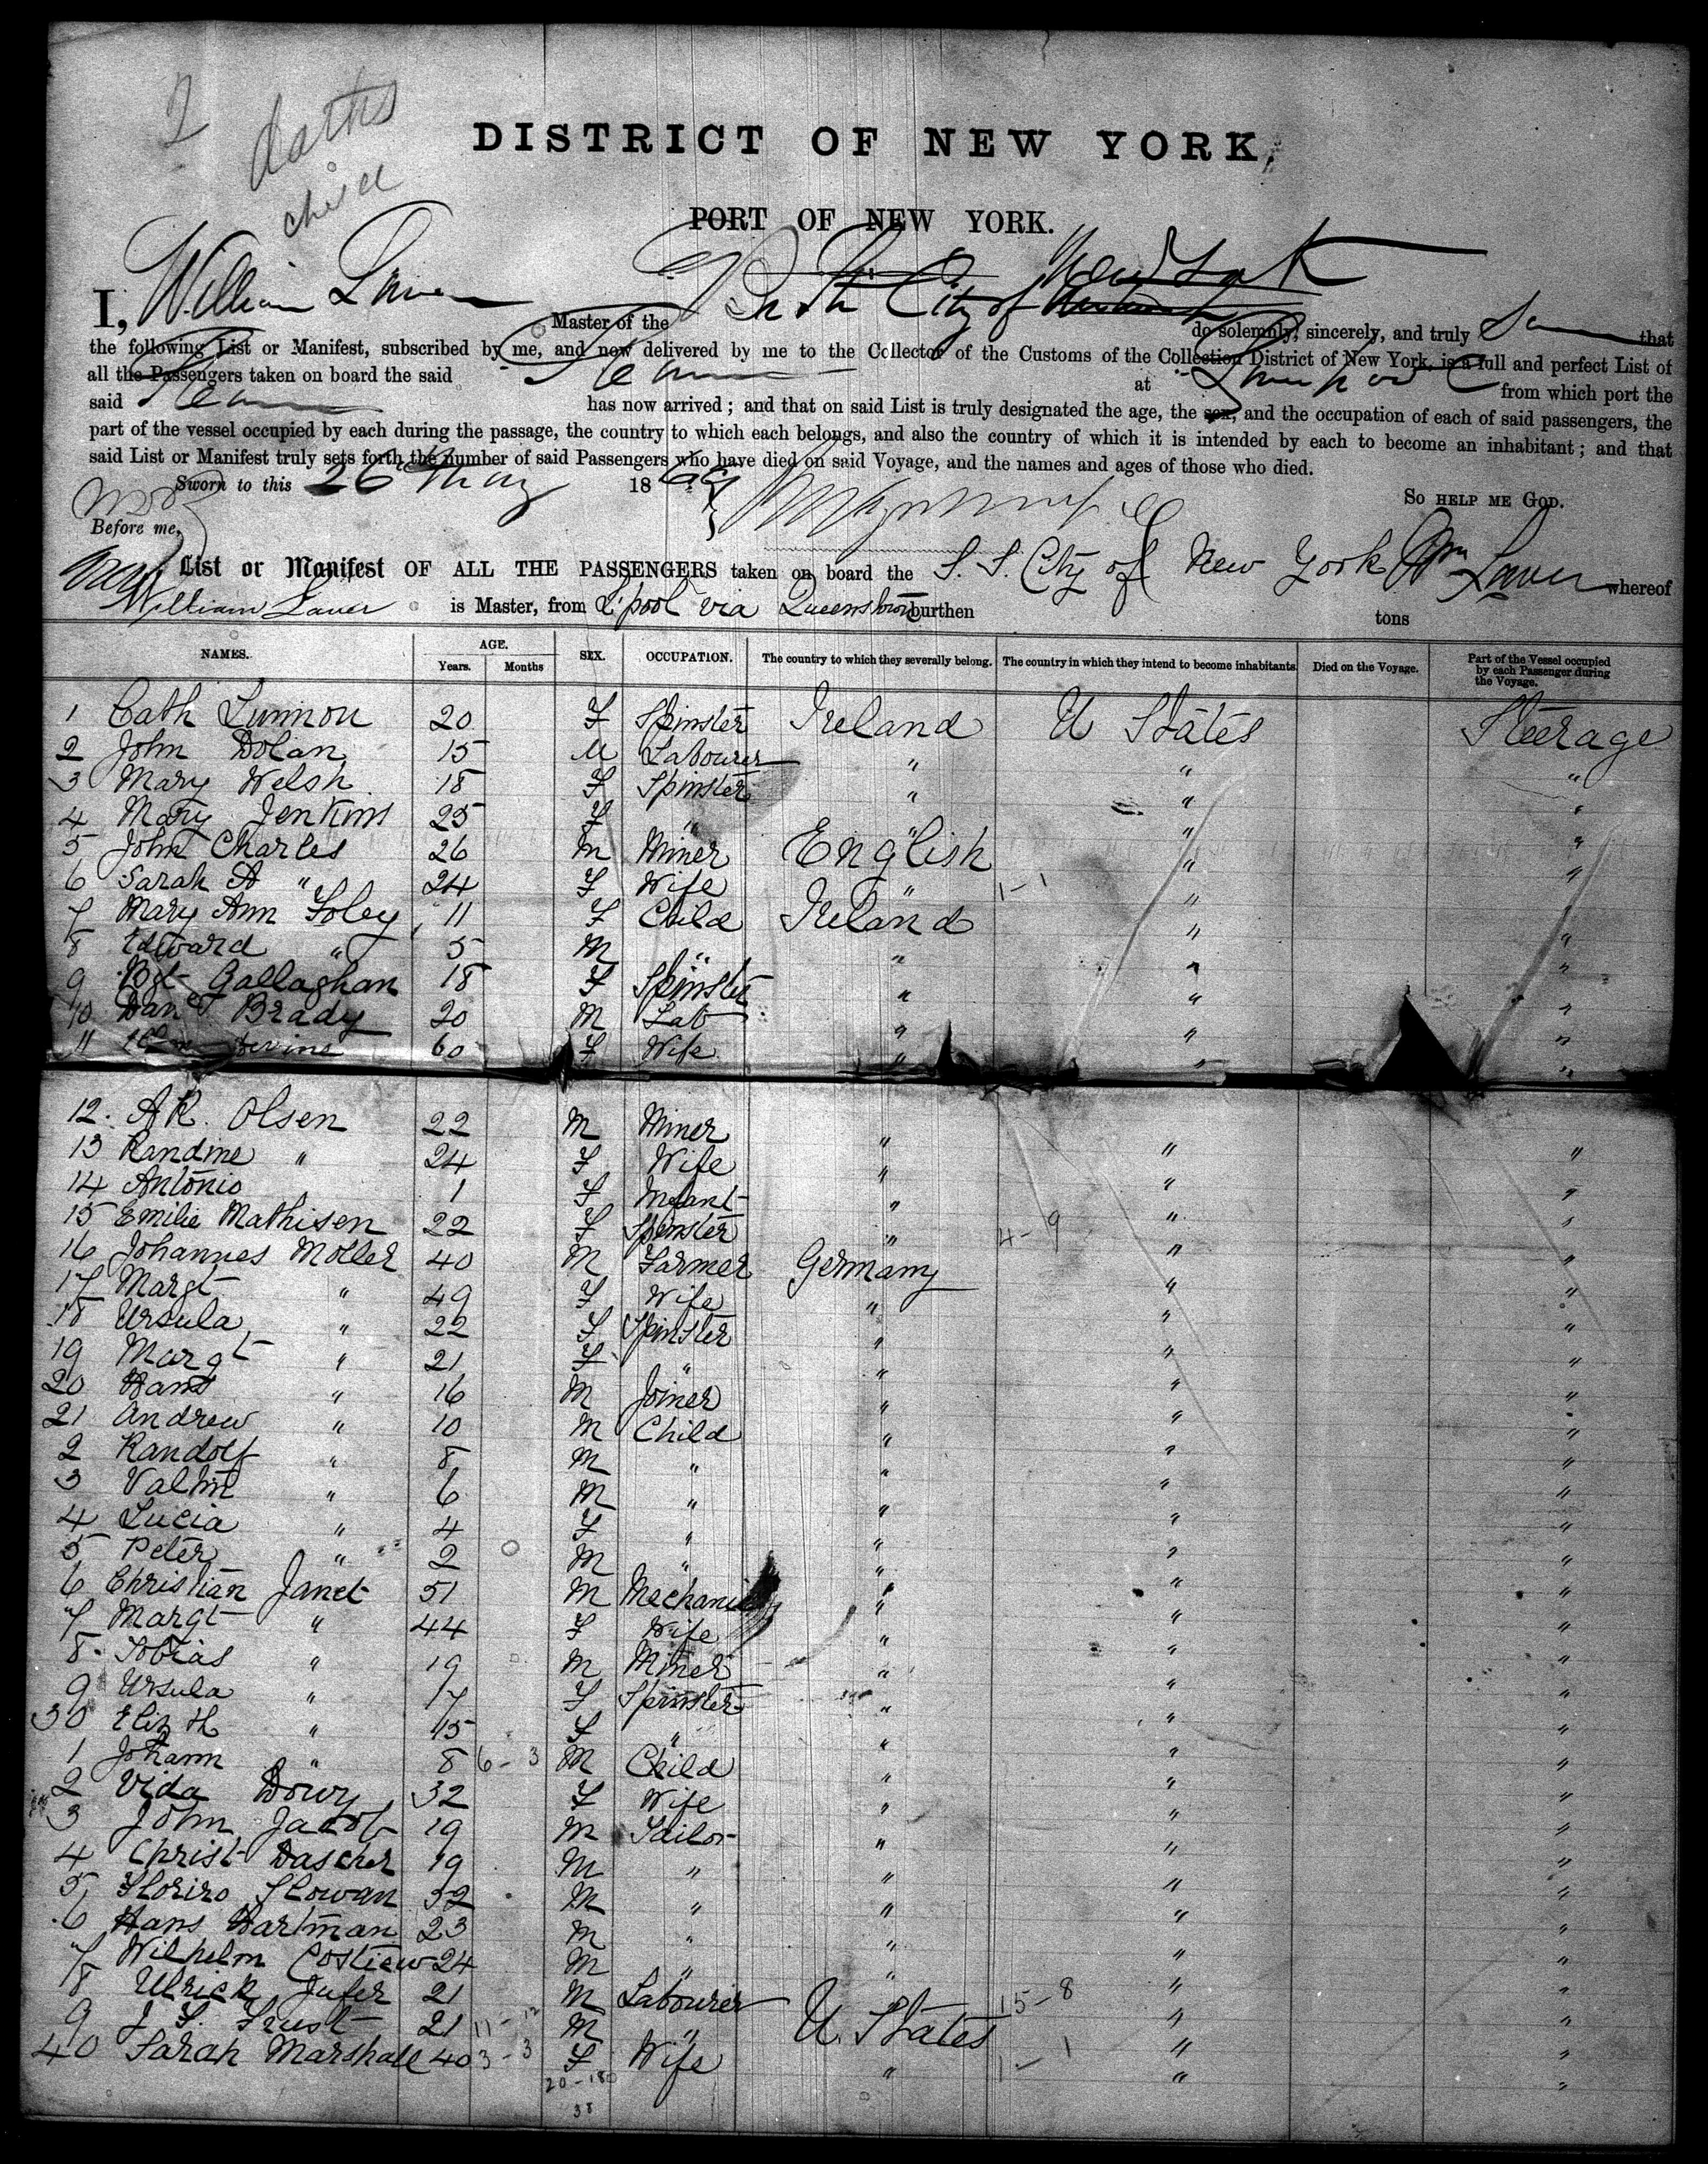 2 deaths
child
DISTRICT OF NEW YORK.
PORT OF NEW YORK.
I, William Laver Master of the City of New York do solemnly, sincerely, and truly that
the following List or Manifest, subscribed by me, and now delivered by me to the Collector of the Customs of the Collection District of New York, is a full and perfect List of
all the Passengers taken on board the said Steamer at Liverpool from which port the
said Steamer has now arrived; and that on said List is truly designated the age, the sex, and the occupation of each of said passengers, the
part of the vessel occupied by each during the passage, the country to which each belongs, and also the country of which it is intended by each to become an inhabitant; and that
said List or Manifest truly sets forth the number of said Passengers who have died on said Voyage, and the names and ages of those who died.
Sworn to this 26 May 1869 So HELP ME GOD.
Before me,
List or Manifest OF ALL THE PASSENGERS taken on board the S. S. City of New York Wm Laver whereof
William Laver is Master, from L'pool via Queenstown burthen tons
NAMES. AGE. Years. Months SEX. OCCUPATION. The country to which they severally belong. The country in which they intend to become inhabitants. Died on the Voyage. Part of the Vessel occupied by each Passenger during the Voyage.
1 Cath Lunnon 20 F Spinster Ireland U States Steerage
2 John Dolan 15 M Labourer " " "
3 Mary Welsh 18 F Spinster " " "
4 Mary Jenkins 25 F " " " "
5 John Charles 26 M Miner English " "
6 Sarah A " 24 F Wife " 1-1 " "
7 Mary Ann Foley 11 F Child Ireland " "
8 Edward " 5 M " " " "
9 Bgt Gallaghan 18 F Spinster " " "
10 Danl Brady 20 M Lab " " "
11 Devine 60 F Wife " " "
12 A R. Olsen 22 M Miner " " "
13 Randine " 24 F Wife " " "
14 Antonio 1 F Infant " " "
15 Emilie Mathisen 22 F Spinster " 4-9 " "
16 Johannes Moller 40 M Farmer Germany " "
17 Margt " 49 F Wife " " "
18 Ursula " 22 F Spinster " " "
19 Margt " 21 F " " " "
20 Hans " 16 M Joiner " " "
21 Andrew " 10 M Child " " "
2 Randolf " 8 M " " " "
3 Valtin " 6 M " " " "
4 Lucia " 4 F " " " "
5 Peter " 2 M " " " "
6 Christian Janet 51 M Mechanic " " "
7 Margt " 44 F Wife " " "
8 Tobias " 19 M Miner " " "
9 Ursula " 17 F Spinster " " "
30 Eliz th " 15 F " " " "
1 Johann " 8 6-3 M Child " " "
2 Vida Dowy 32 F Wife " " "
3 John Jacob 19 M Tailor " " "
4 Christ Dascher 19 M " " " "
5 Floriro Flowan 52 M " " " "
6 Hans Hartman 23 M " " " "
7 Wilhelm Costiew 24 M " " " "
8 Ulrick Jufer 21 M Labourer " 15-8 " "
9 J. F. Frust 21 11-12 M " U States " "
40 Sarah Marshall 40 3-3 F Wife " 1-1 " "
20-180
38